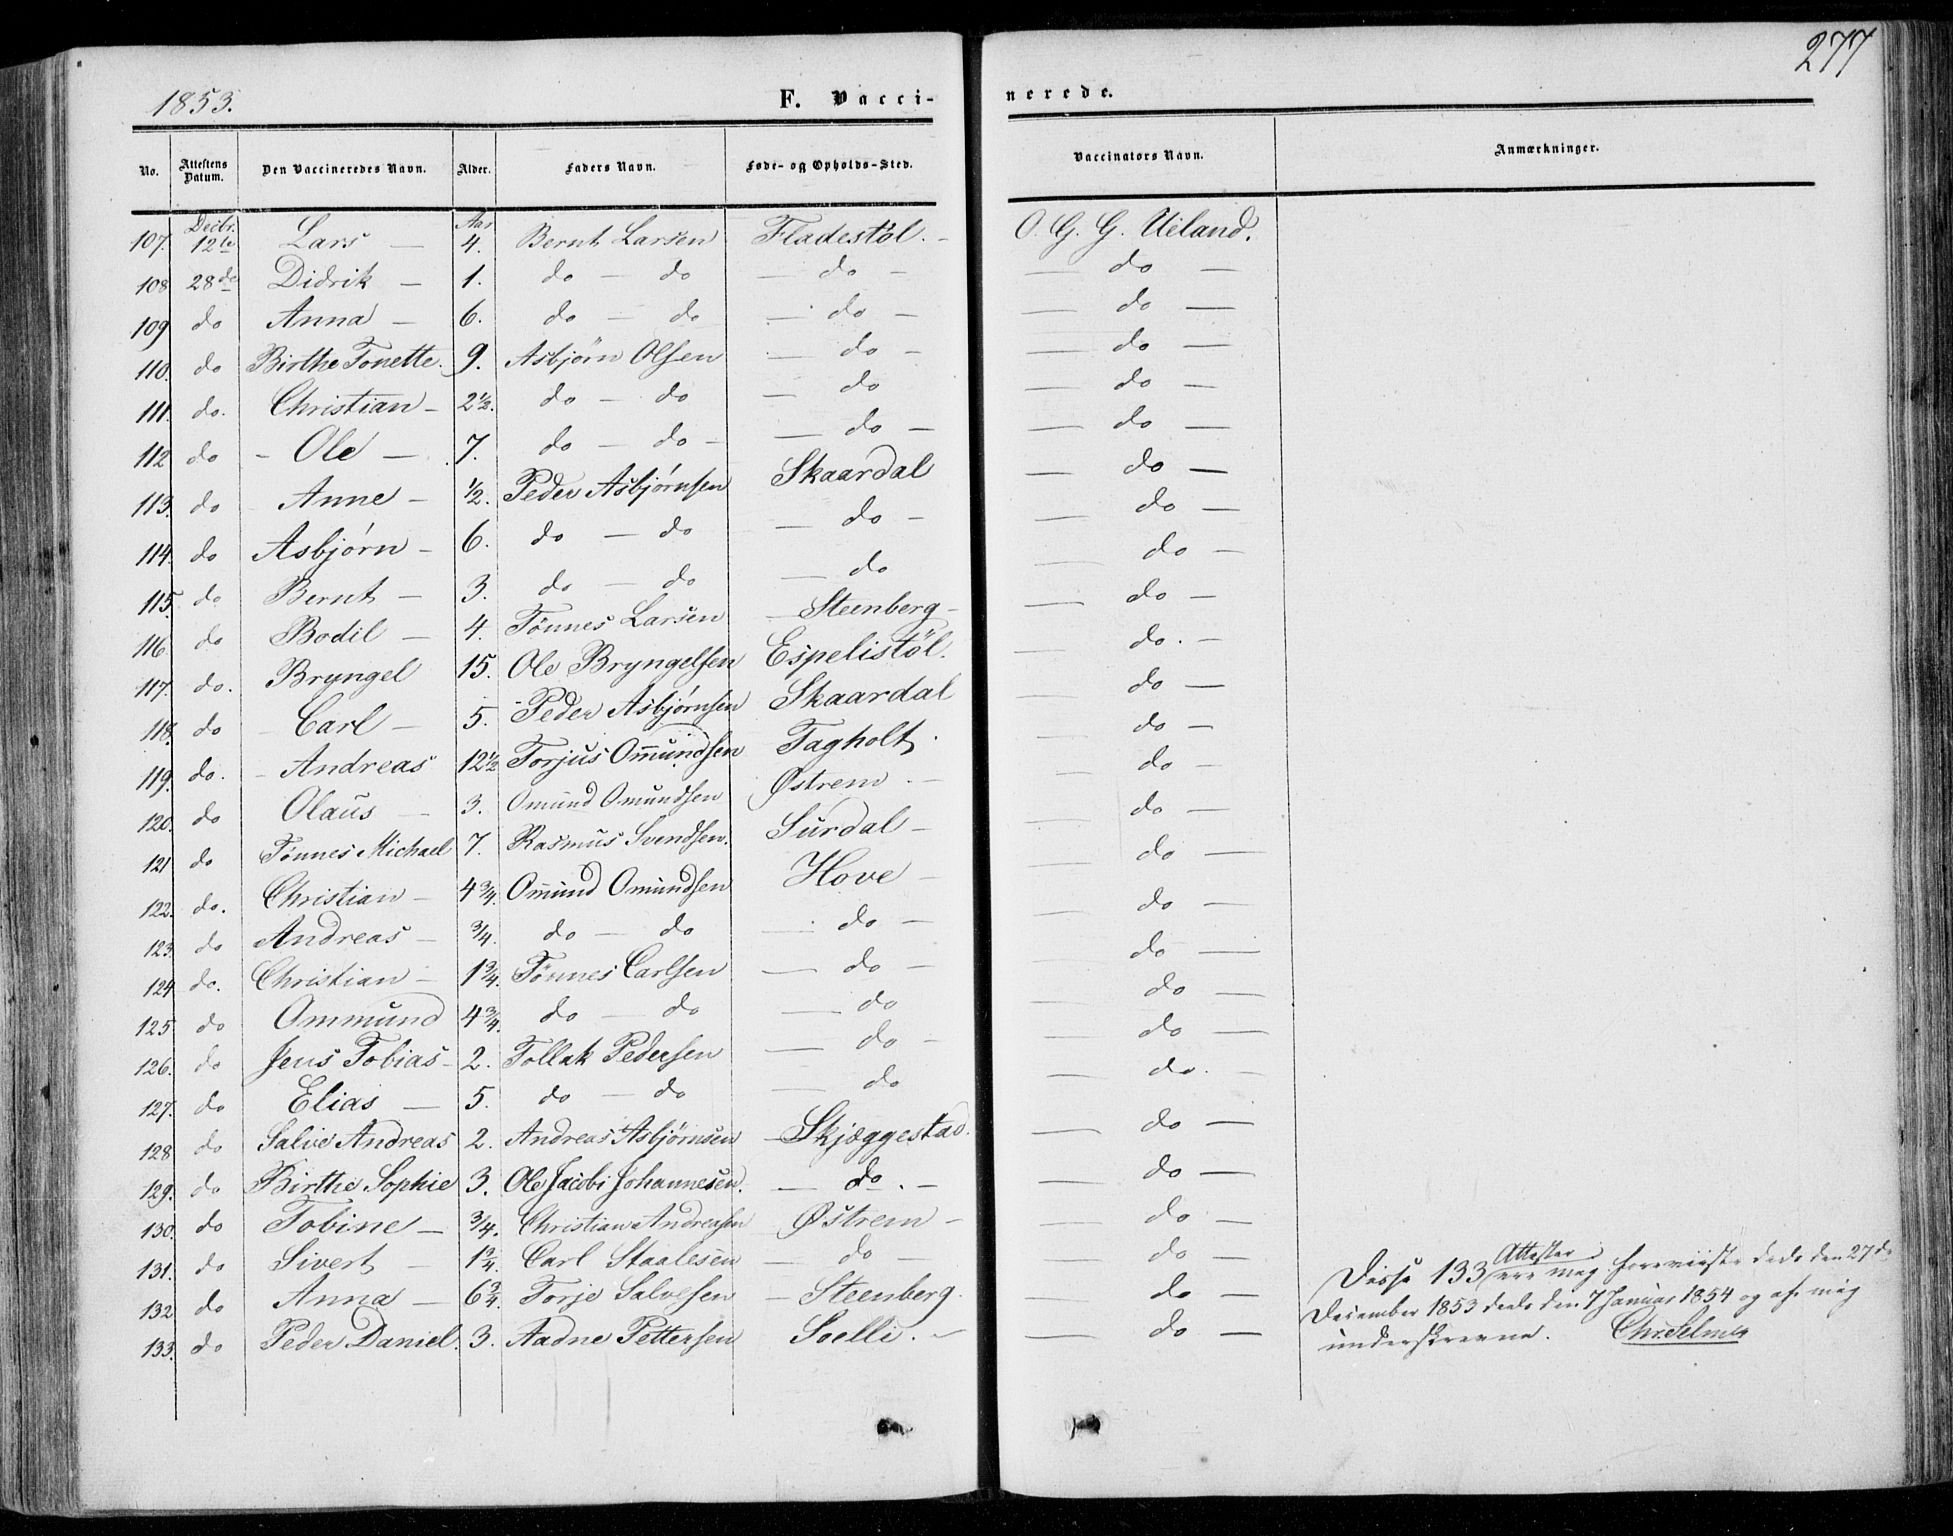 277
1853.
F. Vacci-
nerede.
No. Attestens Datum. Den Vaccineredes Navn. Alder. Faders Navn. Føde- og Opholds-Sted. Vaccinators Navn. Anmærkninger.
Decbr. Aar
107. 12te Lars — 4. Bernt Larsen Fladestöl. — O. G. G. Ueland.
108 28de Didrik — 1. do — do — do — — do —
109 do Anna — 6. do — do — do — — do —
110. do Birthe Tonette. 9. Asbjørn Olsen — do — — do —
111. do. Christian — 2½. do — do — do — do —
112 do - Ole — 7. do — do — — do — — do —
113. do Anne — ½. Peder Asbjørnsen Skaardal — do —
114. do Asbjørn — 6. do — do — do — — do —
115. do Bernt — 3. do — do — do — do —
116. do Bodil — 4. Tönnes Larsen — Steenberg — — do —
117. do. Bryngel 15. Ole Bryngelsen Espelistöl. — do. —
118. do Carl — 5. Peder Asbjørnsen Skaardal — do —
119. do. - Andreas 12½ Torjus Om̄undsen Tagholt. — do —
120. do Olaus — 3. Omund Omundsen Østrem. — — do —
121 do Tønnes Michael 7. Rasmus Svendsen. Surdal — — do —
122. do. Christian — 4¾. Om̄und Omundsen Hove — — do —
123. do Andreas — ¾. do — do — do — — do —
124 do. Christian — 1¾. Tönnes Carlsen — do — — do —
125. do Ommund 4¾. do — do — do — do —
126. do Jens Tobias — 2. Tollak Pedersen — do — — do —
127. do Elias — 5. do — do — do — do. —
128 do Salve Andreas 2. Andreas Asbjørnsen — Skjæggestad. — do —
129. do Birthe Sophie 3. Ole Jacobi Johannesen. — do. — — do —
130. do Tobine — ¾. Christian Andreasen Østrem — — do —
131. do Sivert — 1¾ Carl Staalesen — do — — do —
132 do Anna — 6¾ Torje Salvesen — Steenberg. — do —
133. do Peder Daniel. 3. Aadne Pettersen Soelli. — — do —
Disse 133 Attester ere mig foreviiste deels den 27de
December 1853 deels den 7 Januar 1854 og af mig
underskrevne. Chr. Selmer